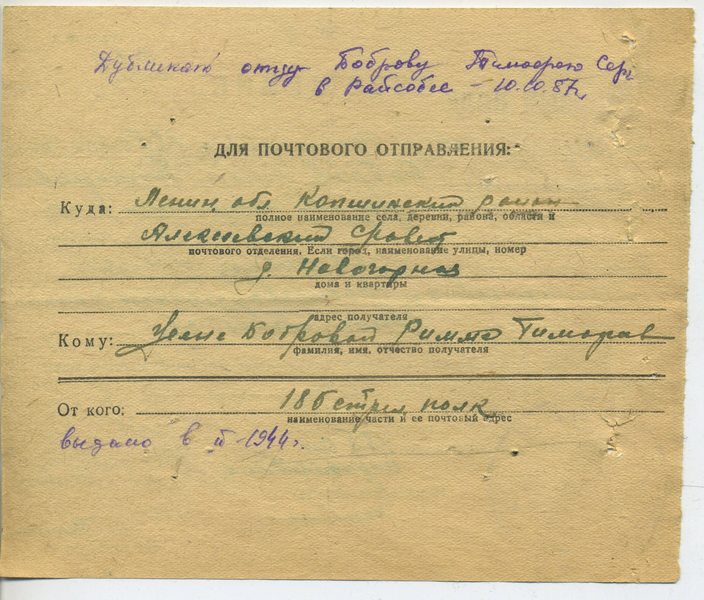 Дубликат отцу Боброву Тимофею Сер
в Райсобес – 10.10.57 г.
ДЛЯ ПОЧТОВОГО ОТПРАВЛЕНИЯ:
Куда: Ленин. обл Капшинский район
полное наименование села, деревни, района, области и
Алексеевский с/совет
почтового отделения. Если город, наименование улицы, номер
д. Новогорная
дома и квартиры
адрес получателя
Кому: Бобровой Римме
фамилия, имя, отчество получателя
От кого: 186 стрел полк
наименование части и ее почтовый адрес
выдано в II-1944 г.